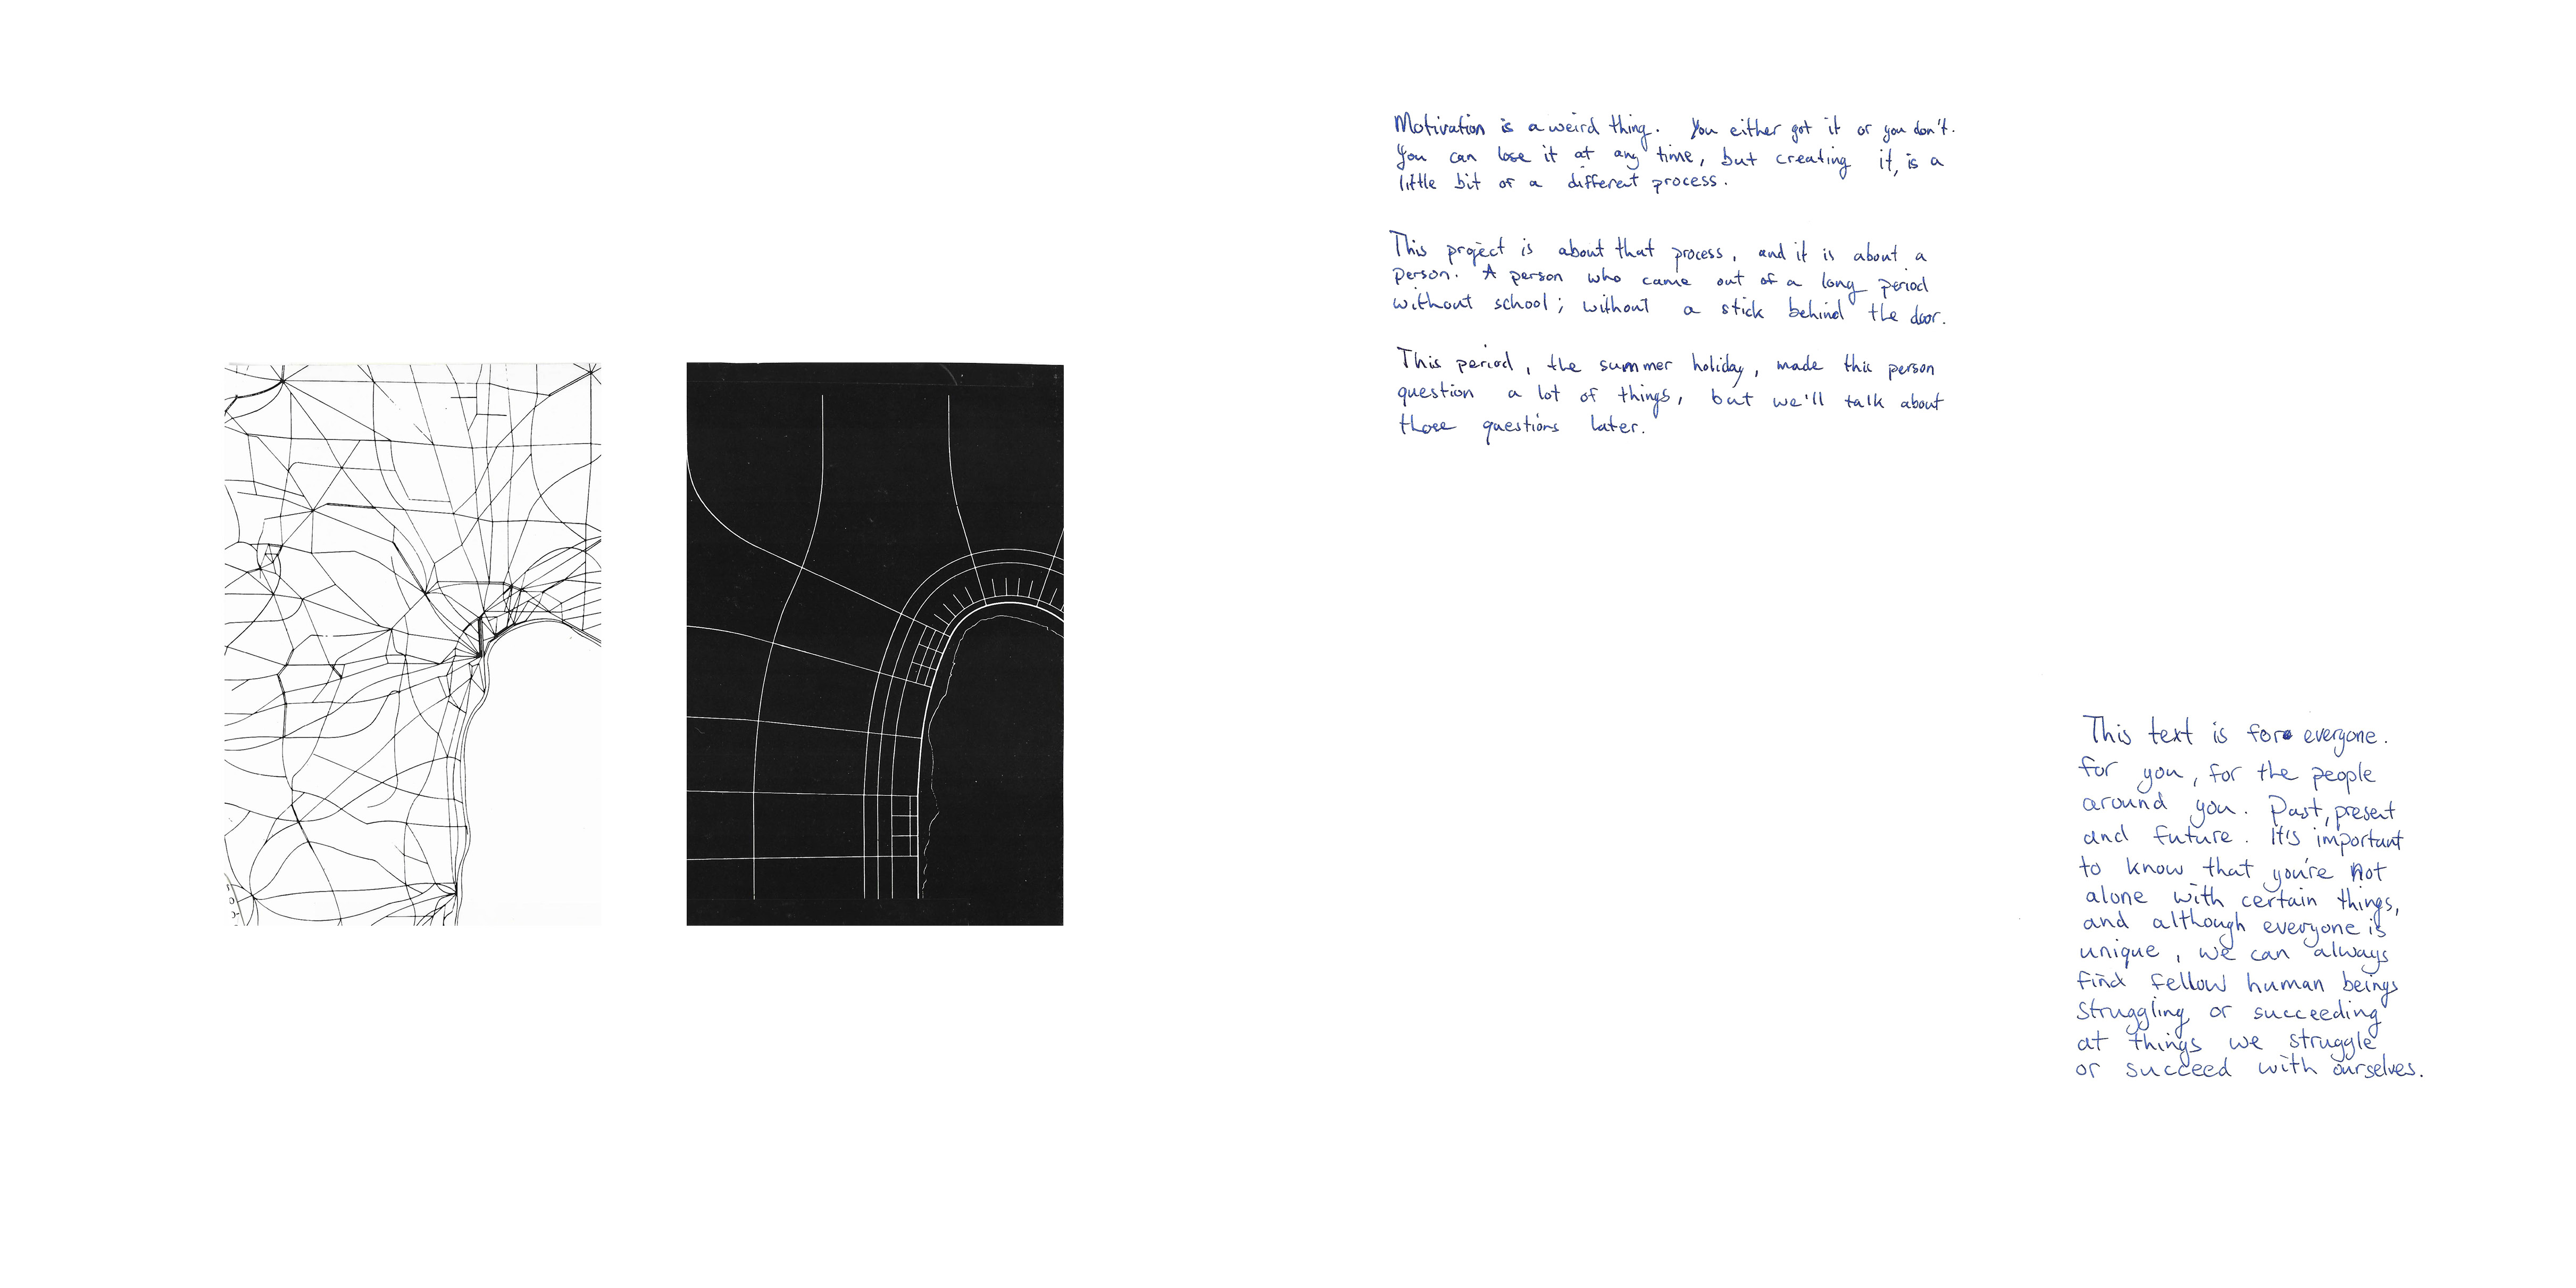 Motivation is a weird thing. You either got it or you don't.
You can lose it at any time, but creating it, is a
little bit of a different process.
This project is about that process, and it is about a
person. A person who came out of a long period
without school; without a stick behind the door.
This period, the summer holiday, made this person
question a lot of things, but we'll talk about
those questions later.
This text is for everyone.
For you, for the people
around you. Past, present
and future. It's important
to know that you're not
alone with certain things,
and although everyone is
unique, we can always
find fellow human beings
struggling or succeeding
at things we struggle
or succeed with ourselves.